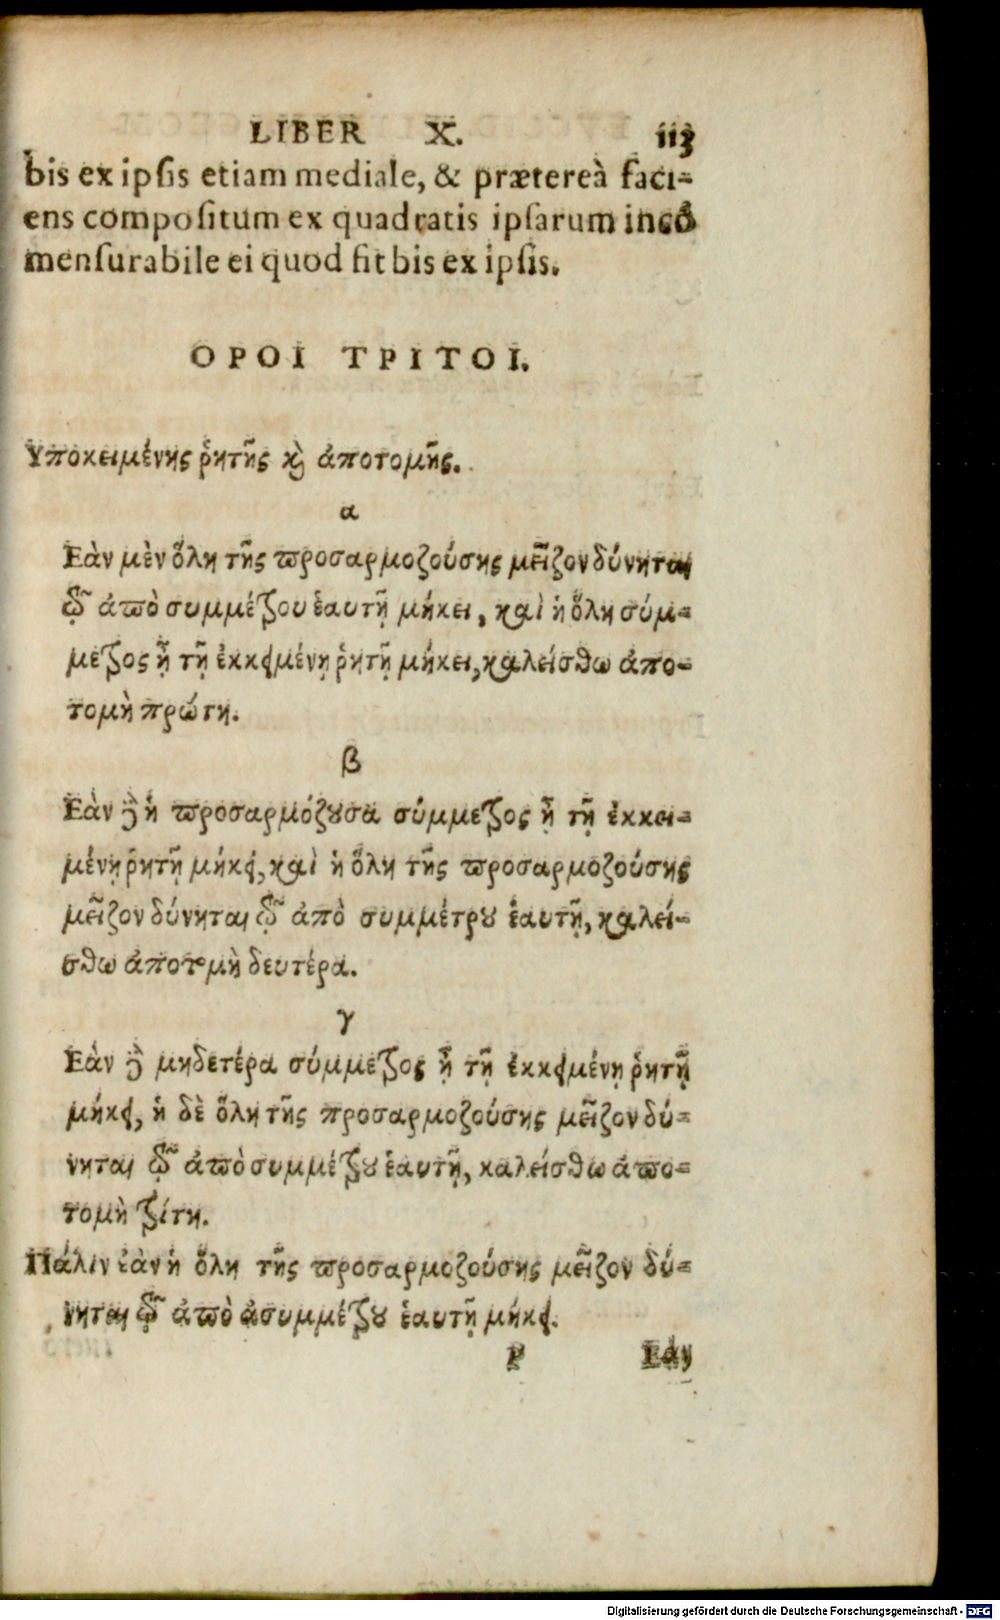 LIBER X. 113
bis ex ipſis etiam mediale, & prætereà faci-
ens compoſitum ex quadratis ipſarum incō
menſurabile ei quod fit bis ex ipſis.
ΟΡΟΙ ΤΡΙΤΟΙ.
Υποκειμένης ῥητῆς ϗ̀ ἀποτομῆς.
α
Εὰν μὲν ὅλη τῆς προσαρμοζούσης μεῖζον δύνηται
τῷ ἀπὸ συμμέτρου ἑαυτῇ μήκει, καὶ ἡ ὅλη σύμ-
μετρος ᾖ τῇ ἐκκειμένῃ ῥητῇ μήκει, καλείσθω ἀπο-
τομὴ πρώτη.
β
Εὰν δὲ ἡ προσαρμόζουσα σύμμετρος ᾖ τῇ ἐκκει-
μένῃ ῥητῇ μήκει, καὶ ἡ ὅλη τῆς προσαρμοζούσης
μεῖζον δύνηται τῷ ἀπὸ συμμέτρου ἑαυτῇ, καλεί-
σθω ἀποτομὴ δευτέρα.
γ
Εὰν δὲ μηδετέρα σύμμετρος ᾖ τῇ ἐκκειμένῃ ῥητῇ
μήκει, ἡ δὲ ὅλη τῆς προσαρμοζούσης μεῖζον δύ-
νηται τῷ ἀπὸ συμμέτρου ἑαυτῇ, καλείσθω ἀπο-
τομὴ τρίτη.
Πάλιν ἐὰν ἡ ὅλη τῆς προσαρμοζούσης μεῖζον δύ-
νηται τῷ ἀπὸ ἀσυμμέτρου ἑαυτῇ μήκει.
P Εὰν
Digitalisierung gefördert durch die Deutsche Forschungsgemeinschaft - DFG